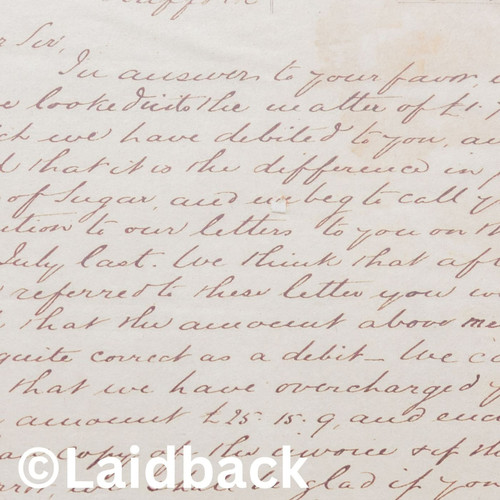 r Sir,
In answer to your favor,
e looked into the matter of £1.
ch we have debited to you, an
d that it is the difference in p
of Sugar, and we beg to call y
ution to our letters to you on th
July last. We think that aft
referred to these letter you w
d that the amount above me
quite correct as a debit — We c
that we have overcharged y
amount £25.15.9, and enc
copy of this invoice & if
we shall be glad if you
©Laidback